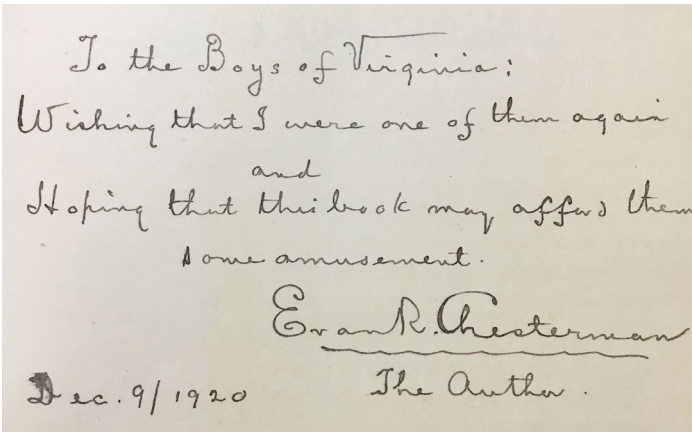 To the Boys of Virginia:
Wishing that I were one of them again
and
Hoping that this book may afford them
some amusement.
Evan R. Chesterman
The Author.
Dec. 9/1920